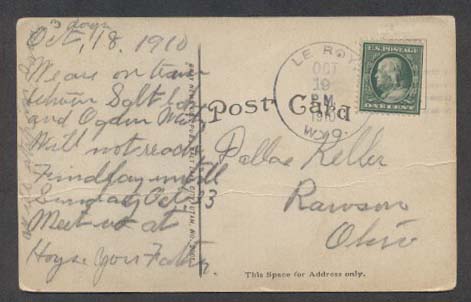 3 days
Oct, 18. 1910
We are on train
between Salt Lake
and Ogden
Will not reach
Findlay untill
Sunday Oct 23
Meet us at
House Your Father
Post Card
LE ROY
OCT
19
PM
1910
WYO.
U.S. POSTAGE
ONE CENT
Dallas Keller
Rawson
Ohio
This Space for Address only.